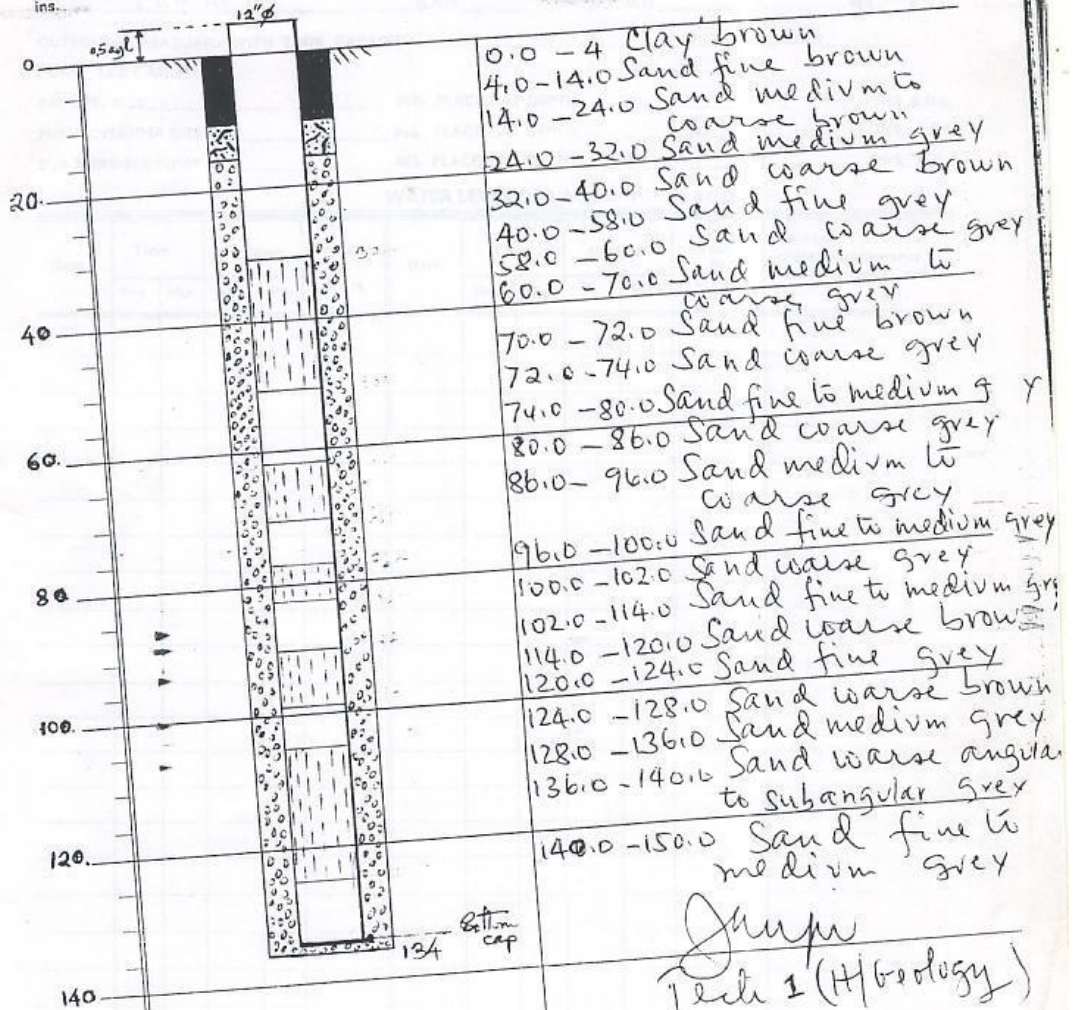 ins.
12"ø
0.5 agl
0
20.
40
60.
80
100.
120.
140
134
Bottom
cap
0.0 - 4 Clay brown
4.0-14.0 Sand fine brown
14.0-24.0 Sand medium to
coarse brown
24.0-32.0 Sand medium grey
32.0- 40.0 Sand coarse brown
40.0-58.0 Sand fine grey
58.0 -60.0 Sand coarse grey
60.0 -70.0 Sand medium to
coarse grey
70.0 - 72.0 Sand fine brown
72.0-74.0 Sand coarse grey
74.0-80.0 Sand fine to medium g y
80.0 -86.0 Sand coarse grey
86.0- 96.0 Sand medium to
coarse grey
96.0 -100.0 Sand fine to medium grey
100.0 -102.0 Sand coarse grey
102.0 -114.0 Sand fine to medium gre
114.0 -120.0 Sand coarse brow
120.0 -124.0 Sand fine grey
124.0 -128.0 Sand coarse brown
128.0 -136.0 Sand medium grey
136.0 -140.0 Sand coarse angula
to subangular grey
140.0 -150.0 Sand fine to
medium grey
Tech 1 (H/Geology)
WATER LE